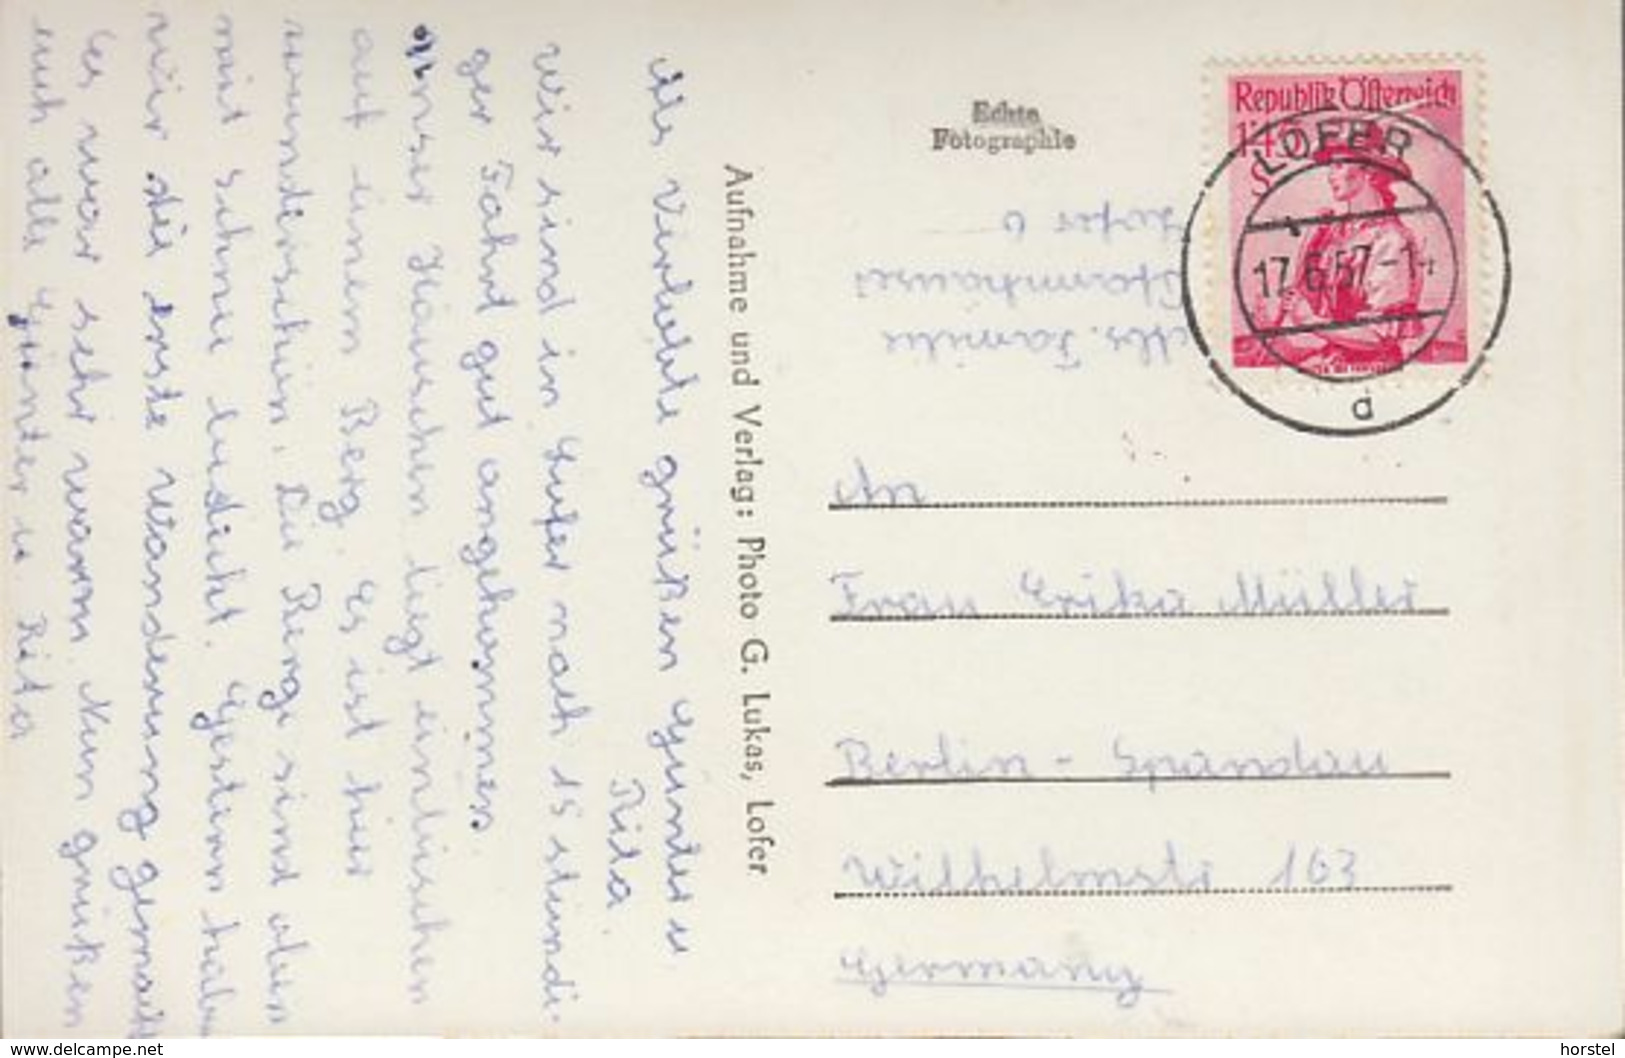 Als Verlobte grüßen Günter u
Rita.
Wir sind in Lofer nach 15 stündi-
ger Fahrt gut angekommen.
Unser Häuschen liegt inzwischen
auf einem Berg. Es ist hier
wunderschön. Die Berge sind oben
mit Schnee bedeckt. Gestern haben
wir die erste Wanderung gemacht
Es war sehr warm. Nun grüßen
euch alle Günter u. Rita
Aufnahme und Verlag: Photo G. Lukas, Lofer
Echte
Fotographie
Republik Österreich
1'45
S
LOFER
17.6.57-14
a
Abs. Familie
Lofer 6
An
Frau Erika Müller
Berlin - Spandau
Wilhelmstr 163
Germany
www.delcampe.net
horstel